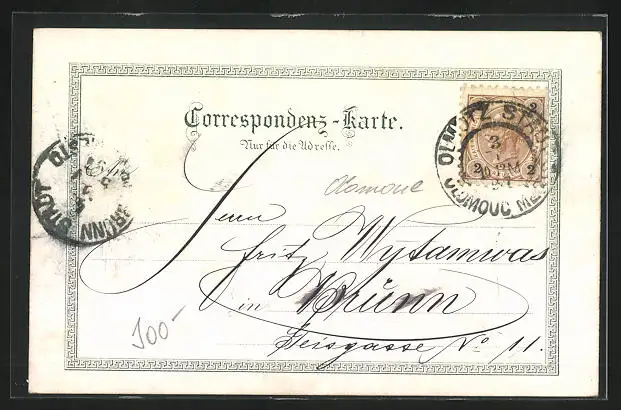 Correspondenz-Karte.
Nur für die Adresse.
2
2 2
OLMÜTZ STADT
3
OLOMOUC MĚ
BRÜNN STADT
Olomouc
Herrn
Fritz Wytamwas
in Brünn
No 11.
300-